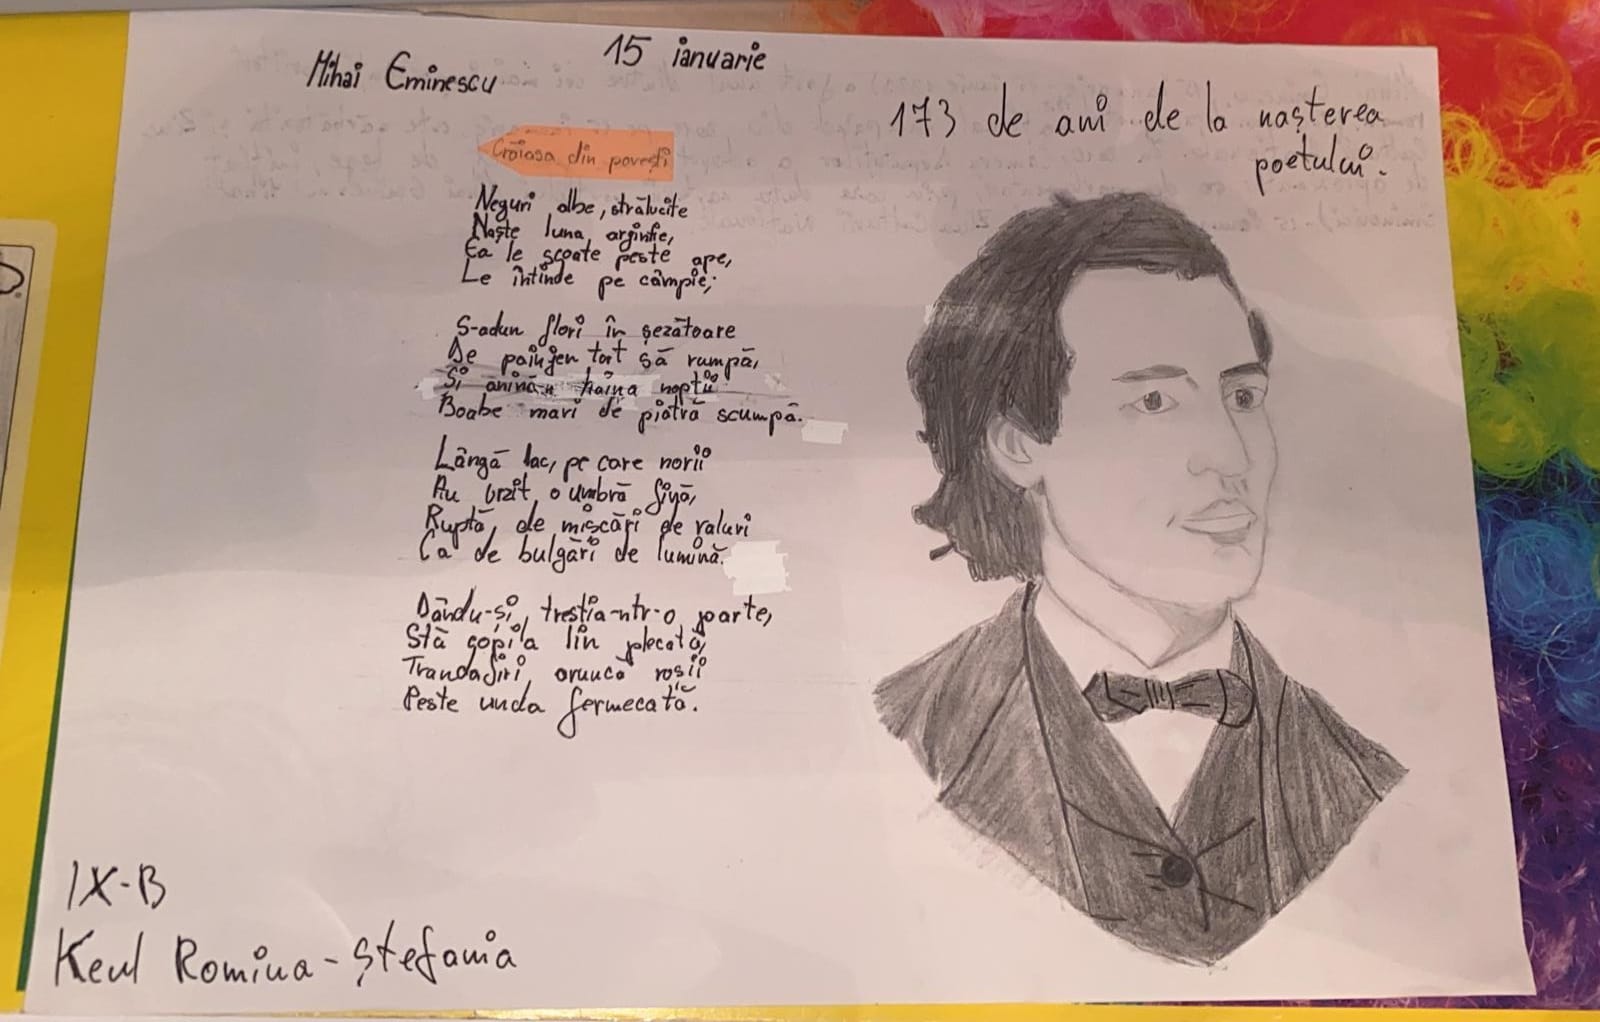 Mihai Eminescu
15 ianuarie
173 de ani de la nașterea
poetului.
Crăiasa din povești
Neguri albe, strălucite
Naște luna argintie,
Ea le scoate peste ape,
Le întinde pe câmpie;
S-adun flori în șezătoare
De painjen tort să rumpă,
Și anină-n haina nopții
Boabe mari de piatră scumpă.
Lângă lac, pe care norii
Au urzit o umbră fină,
Ruptă de mișcări de valuri
Ca de bulgări de lumină.
Dându-și trestia-ntr-o parte,
Stă copila lin plecată,
Trandafiri aruncă roșii
Peste unda fermecată.
IX-B
Keul Romina-Ștefania